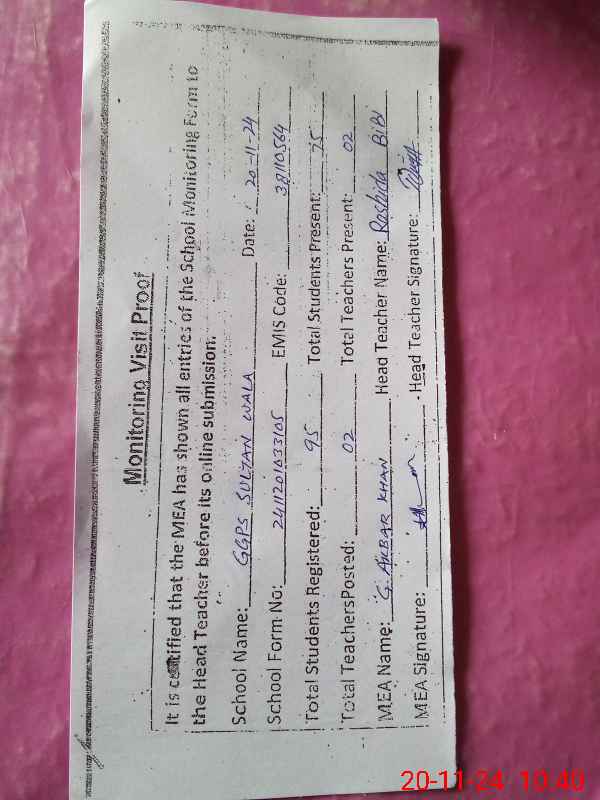 Monitoring Visit Proof
It is certified that the MEA has shown all entries of the School Monitoring Form to
the Head Teacher before its online submission.
School Name: GGPS SULTAN WALA Date: 20-11-24
School Form No: 2411201033105 EMIS Code: 38110564
Total Students Registered: 95 Total Students Present: 75
Total Teachers Posted: 02 Total Teachers Present: 02
MEA Name: G. AKBAR KHAN Head Teacher Name: Rashida BiBi
MEA Signature: Head Teacher Signature:
20-11-24 10:40